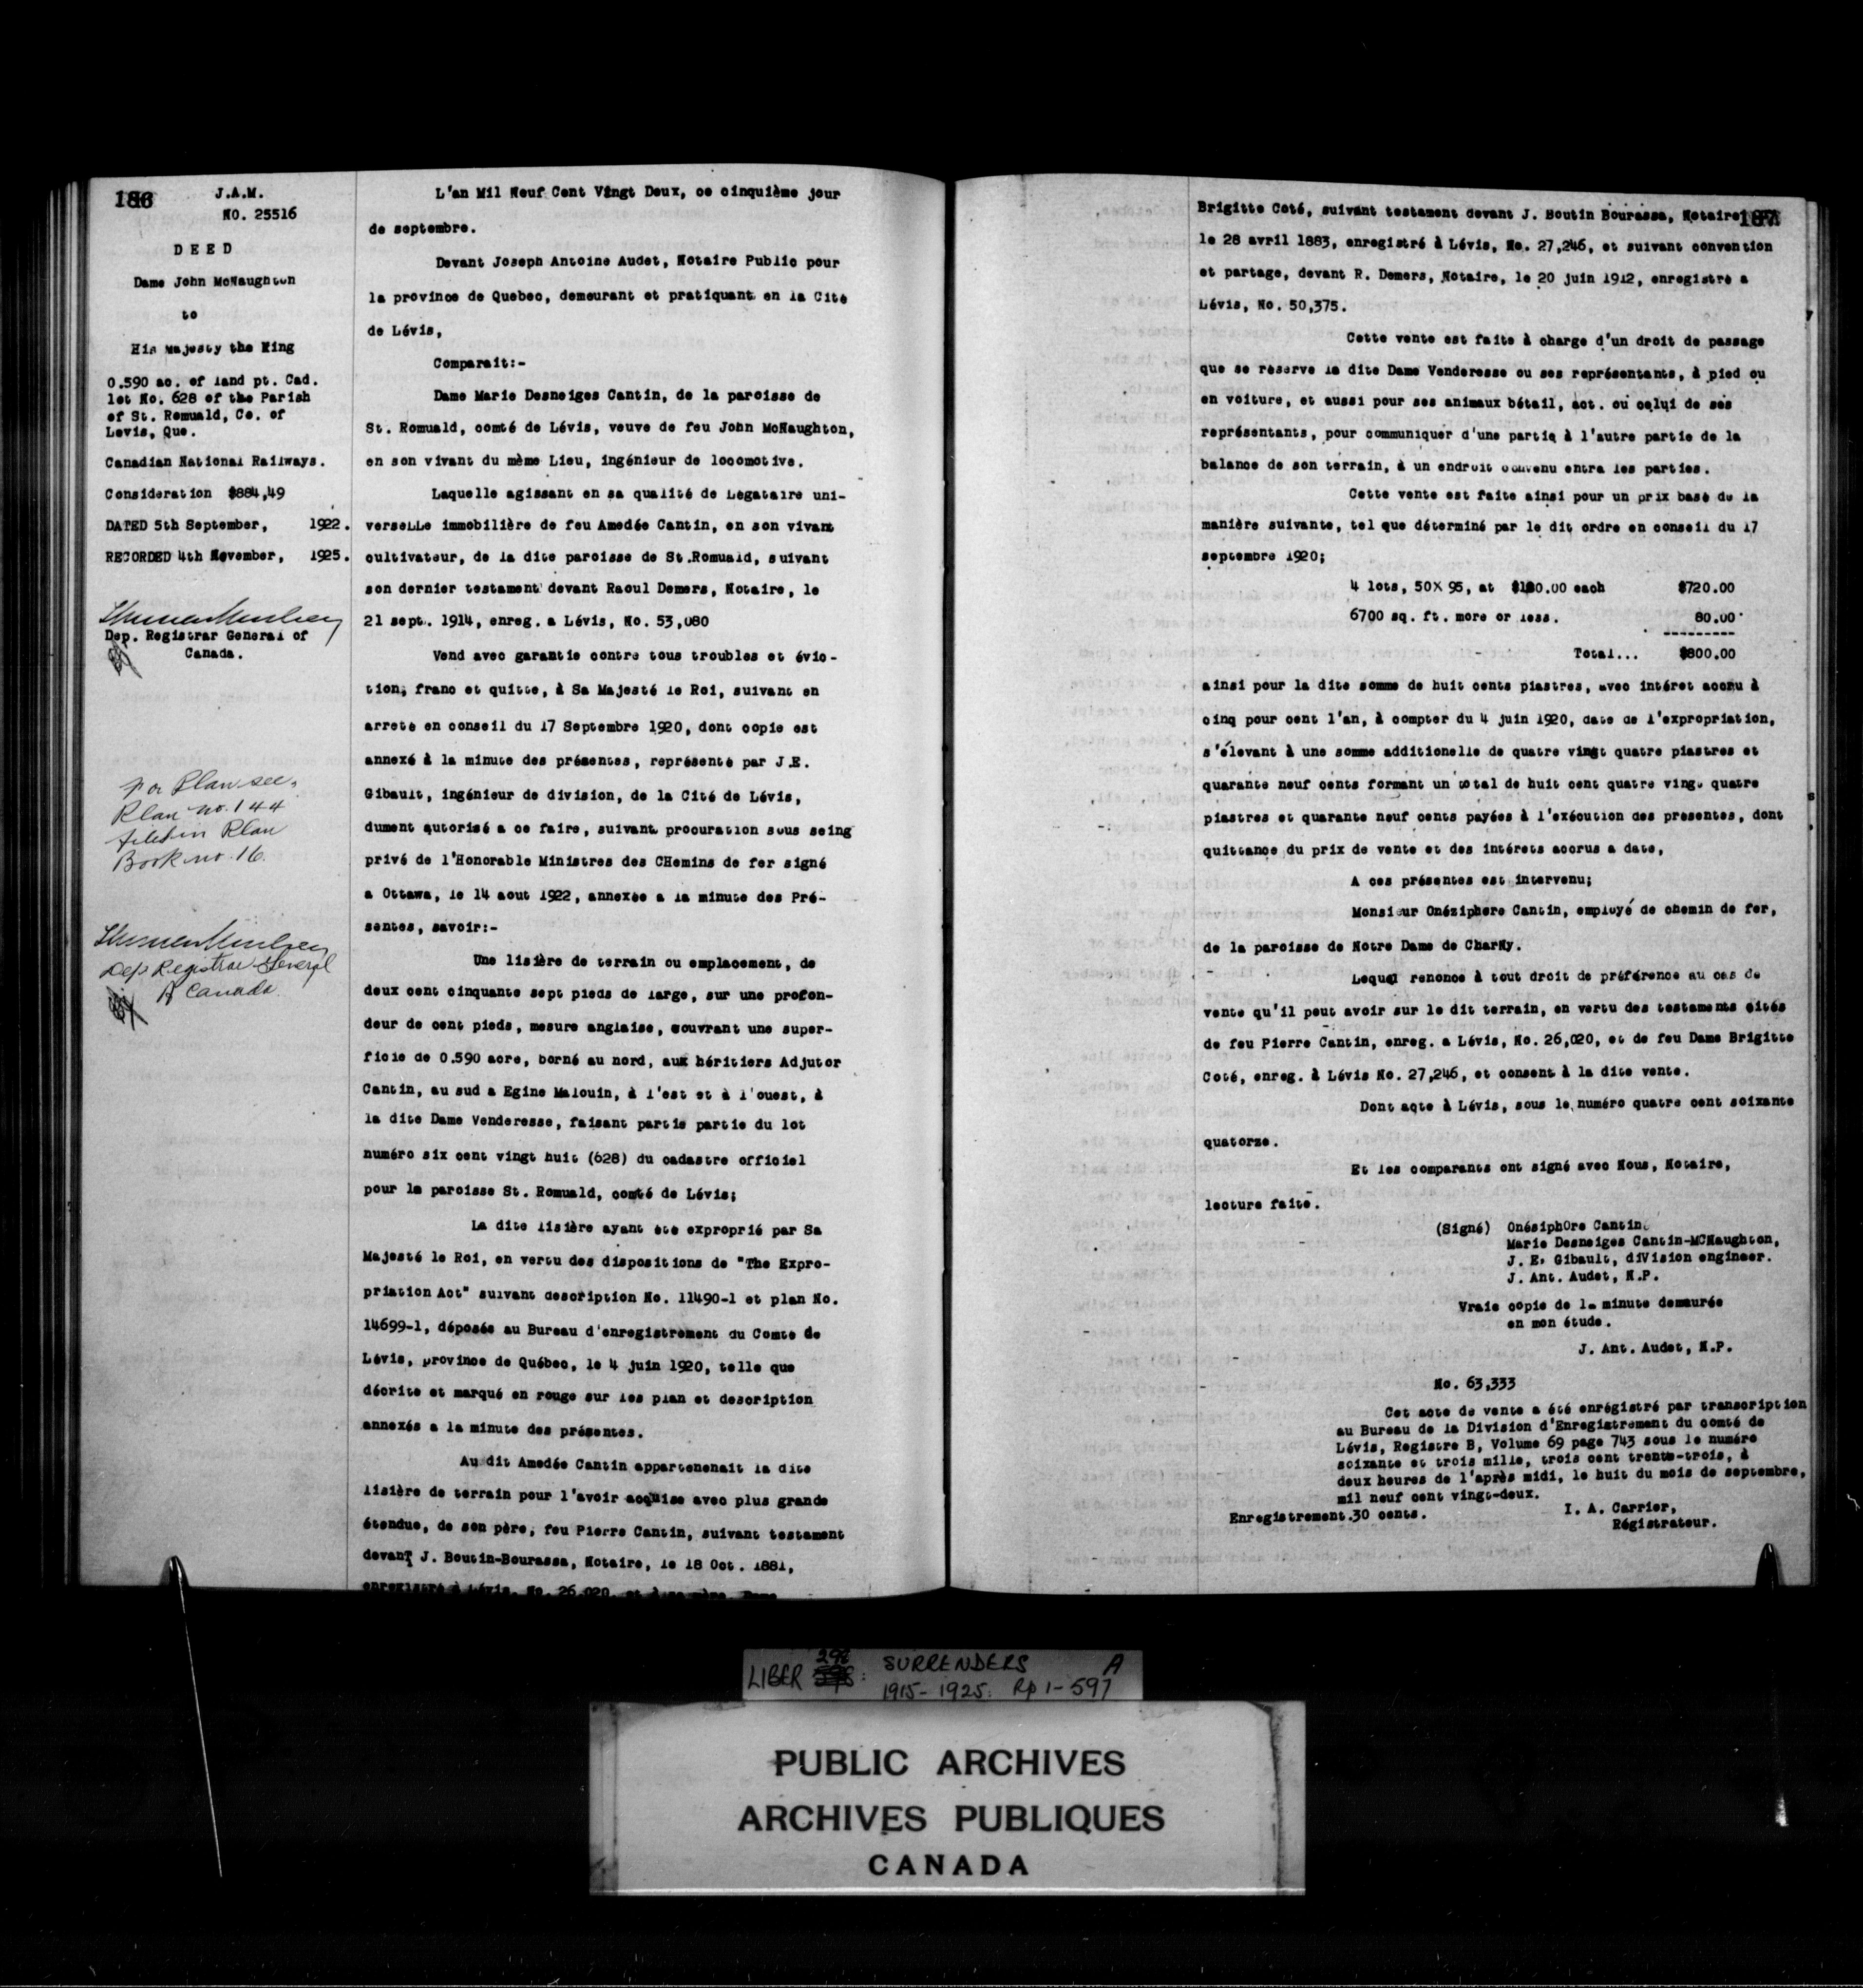 186
J.A.M.
NO. 25516
D E E D
Dame John McNaughton
to
His Majesty the King
0.590 ac. of land pt. Cad.
lot No. 628 of the Parish
of St. Romuald, Co. of
Levis, Que.
Canadian National Railways.
Consideration $884,49
DATED 5th September, 1922.
RECORDED 4th November, 1925.
Dep. Registrar General of
Canada.
For Plan see
Plan no. 144
filed in Plan
Book no. 16.
Dep Registrar General
of Canada.
L'an Mil Neuf Cent Vingt Deux, ce cinquième jour
de septembre.
Devant Joseph Antoine Audet, Notaire Public pour
la province de Quebec, demeurant et pratiquant en la Cité
de Lévis,
Comparait:-
Dame Marie Desneiges Cantin, de la paroisse de
St. Romuald, comté de Lévis, veuve de feu John McNaughton,
en son vivant du mème Lieu, ingénieur de locomotive.
Laquelle agissant en sa qualité de Légataire uni-
verselle immobilière de feu Amedée Cantin, en son vivant
cultivateur, de la dite paroisse de St.Romuald, suivant
son dernier testament devant Raoul Demers, Notaire, le
21 sept. 1914, enreg. a Lévis, No. 53,080
Vend avec garantie contre tous troubles et évic-
tion, franc et quitte, à Sa Majesté le Roi, suivant en
arrete en conseil du 17 Septembre 1920, dont copie est
annexé à la minute des présentes, représenté par J.E.
Gibault, ingénieur de division, de la Cité de Lévis,
dument autorisé a ce faire, suivant procuration sous seing
privé de l'Honorable Ministres des CHemins de fer signé
a Ottawa, le 14 aout 1922, annexée a la minute des Pré-
sentes, savoir:-
Une lisière de terrain ou emplacement, de
deux cent cinquante sept pieds de large, sur une profon-
deur de cent pieds, mesure anglaise, couvrant une super-
ficie de 0.590 acre, borné au nord, aux héritiers Adjutor
Cantin, au sud a Egine Malouin, à l'est et à l'ouest, à
la dite Dame Venderesse, faisant partie partie du lot
numéro six cent vingt huit (628) du cadastre officiel
pour la paroisse St. Romuald, comté de Lévis;
La dite lisière ayant été exproprié par Sa
Majesté le Roi, en vertu des dispositions de "The Expro-
priation Act" suivant description No. 11490-1 et plan No.
14699-1, déposée au Bureau d'enregistrement du Comte de
Lévis, province de Québec, le 4 juin 1920, telle que
décrite et marqué en rouge sur les plan et description
annexés a la minute des présentes.
Au dit Amedée Cantin appartenenait la dite
lisière de terrain pour l'avoir acquise avec plus grande
étendue, de son père, feu Pierre Cantin, suivant testament
devant J. Boutin-Bourassa, Notaire, le 18 Oct. 1881,
enregistré à Lévis, No. 26,020, et à sa mère, Dame
187
Brigitte Coté, suivant testament devant J. Boutin Bourassa, Notaire
le 28 avril 1883, enregistré à Lévis, No. 27,246, et suivant convention
et partage, devant R. Demers, Notaire, le 20 juin 1912, enregistré a
Lévis, No. 50,375.
Cette vente est faite à charge d'un droit de passage
que se réserve la dite Dame Venderesse ou ses représentants, à pied ou
en voiture, et aussi pour ses animaux bétail, act. ou celui de ses
représentants, pour communiquer d'une partie à l'autre partie de la
balance de son terrain, à un endroit convenu entra les parties.
Cette vente est faite ainsi pour un prix basé de la
manière suivante, tel que déterminé par le dit ordre en conseil du 17
septembre 1920;
4 lots, 50X 95, at $180.00 each $720.00
6700 sq. ft. more or less. 80.00
Total... $800.00
ainsi pour la dite somme de huit cents piastres, avec intéret accru à
cinq pour cent l'an, à compter du 4 juin 1920, date de l'expropriation,
s'élevant à une somme additionelle de quatre vingt quatre piastres et
quarante neuf cents formant un total de huit cent quatre vingt quatre
piastres et quarante neuf cents payées à l'exécution des présentes, dont
quittance du prix de vente et des intérets accrus a date,
A ces présentes est intervenu;
Monsieur Onéziphore Cantin, employé de chemin de fer,
de la paroisse de Notre Dame de CharNy.
Lequel renonce à tout droit de préférence au cas de
vente qu'il peut avoir sur le dit terrain, en vertu des testaments cités
de feu Pierre Cantin, enreg. a Lévis, No. 26,020, et de feu Dame Brigitte
Coté, enreg. à Lévis No. 27,246, et consent à la dite vente.
Dont acte à Lévis, sous le numéro quatre cent soixante
quatorze.
Et les comparants ont signé avec Nous, Notaire,
lecture faite.
(Signé) OnésiphOre Cantin.
Marie Desneiges Cantin-MCNaughton,
J. E. Gibault, diVision engineer.
J. Ant. Audet, N.P.
Vraie copie de la minute demeurée
en mon étude.
J. Ant. Audet, N.P.
No. 63,333
Cet acte de vente a été enrégistré par transcription
au Bureau de la Division d'Enregistrement du comté de
Lévis, Registre B, Volume 69 page 743 sous le numéro
soixante et trois mille, trois cent trente-trois, à
deux heures de l'après midi, le huit du mois de septembre,
mil neuf cent vingt-deux.
Enregistrement.30 cents.
I. A. Carrier,
Régistrateur.
LIBER 298: SURRENDERS A
1915-1925. Pp 1-597
PUBLIC ARCHIVES
ARCHIVES PUBLIQUES
CANADA